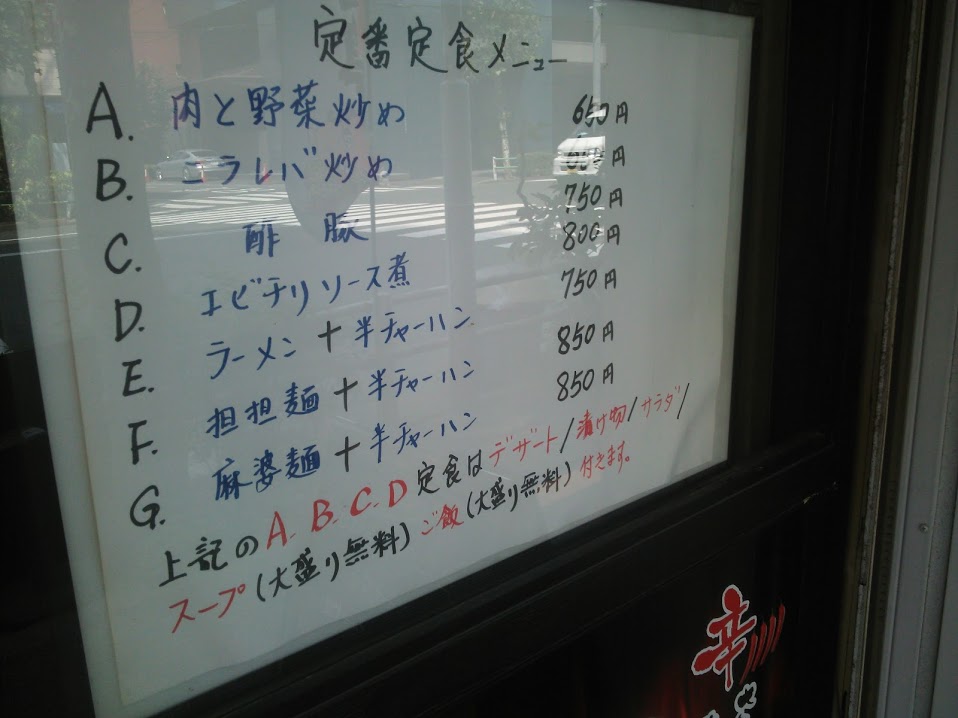 定番定食メニュー
A. 肉と野菜炒め 650円
B. ニラレバ炒め 円
C. 酢豚 750円
D. エビチリソース煮 800円
E. ラーメン+半チャーハン 750円
F. 担担麺+半チャーハン 850円
G. 麻婆麺+半チャーハン 850円
上記のA.B.C.D定食はデザート/漬け物/サラダ/
スープ(大盛り無料)ご飯(大盛り無料)付えます。
辛